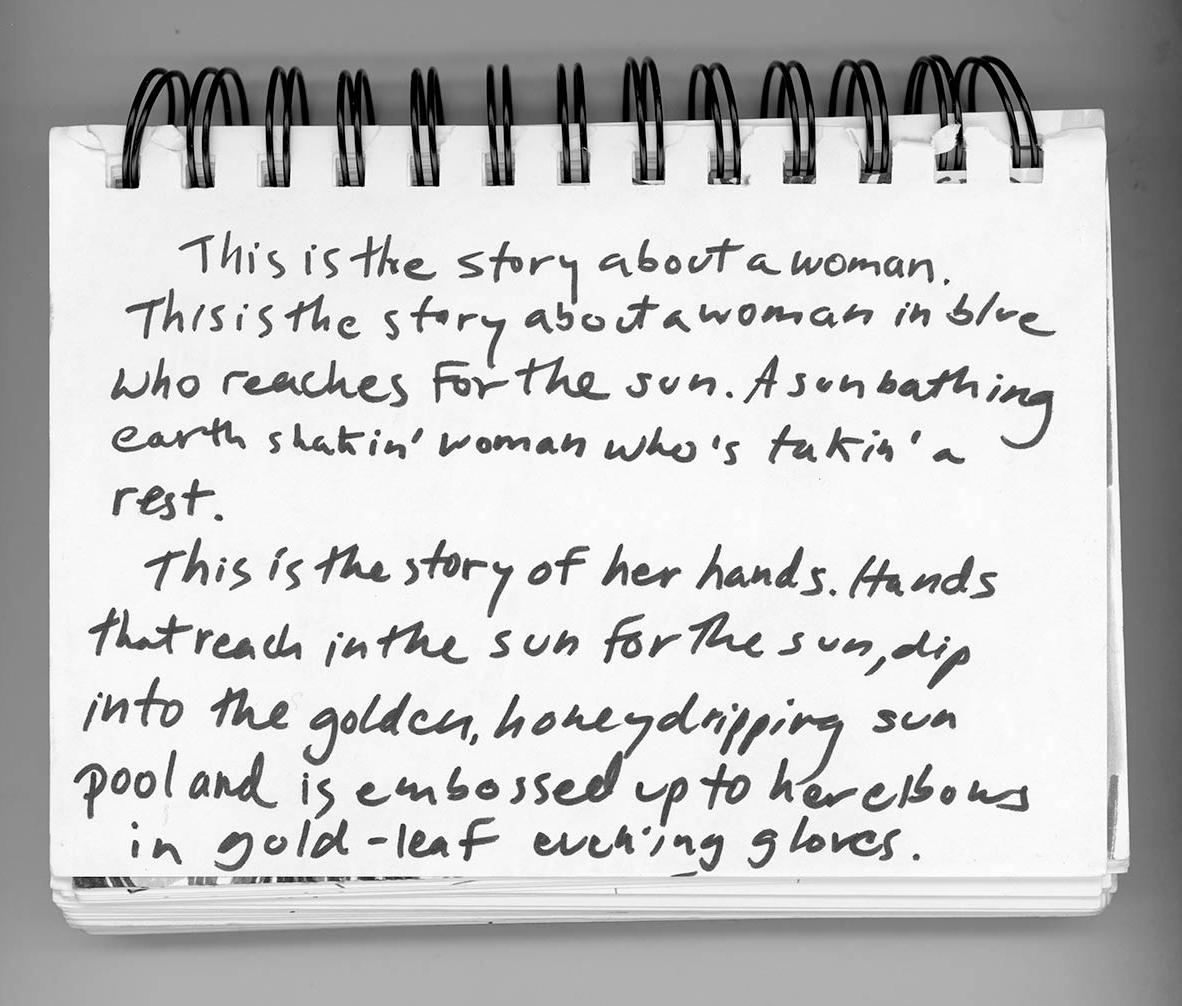 This is the story about a woman.
This is the story about a woman in blue
who reaches for the sun. A sunbathing
earth shakin' woman who's takin' a
rest.
This is the story of her hands. Hands
that reach in the sun for the sun, dip
into the golden, honeydripping sun
pool and is embossed up to her elbows
in gold-leaf evening gloves.